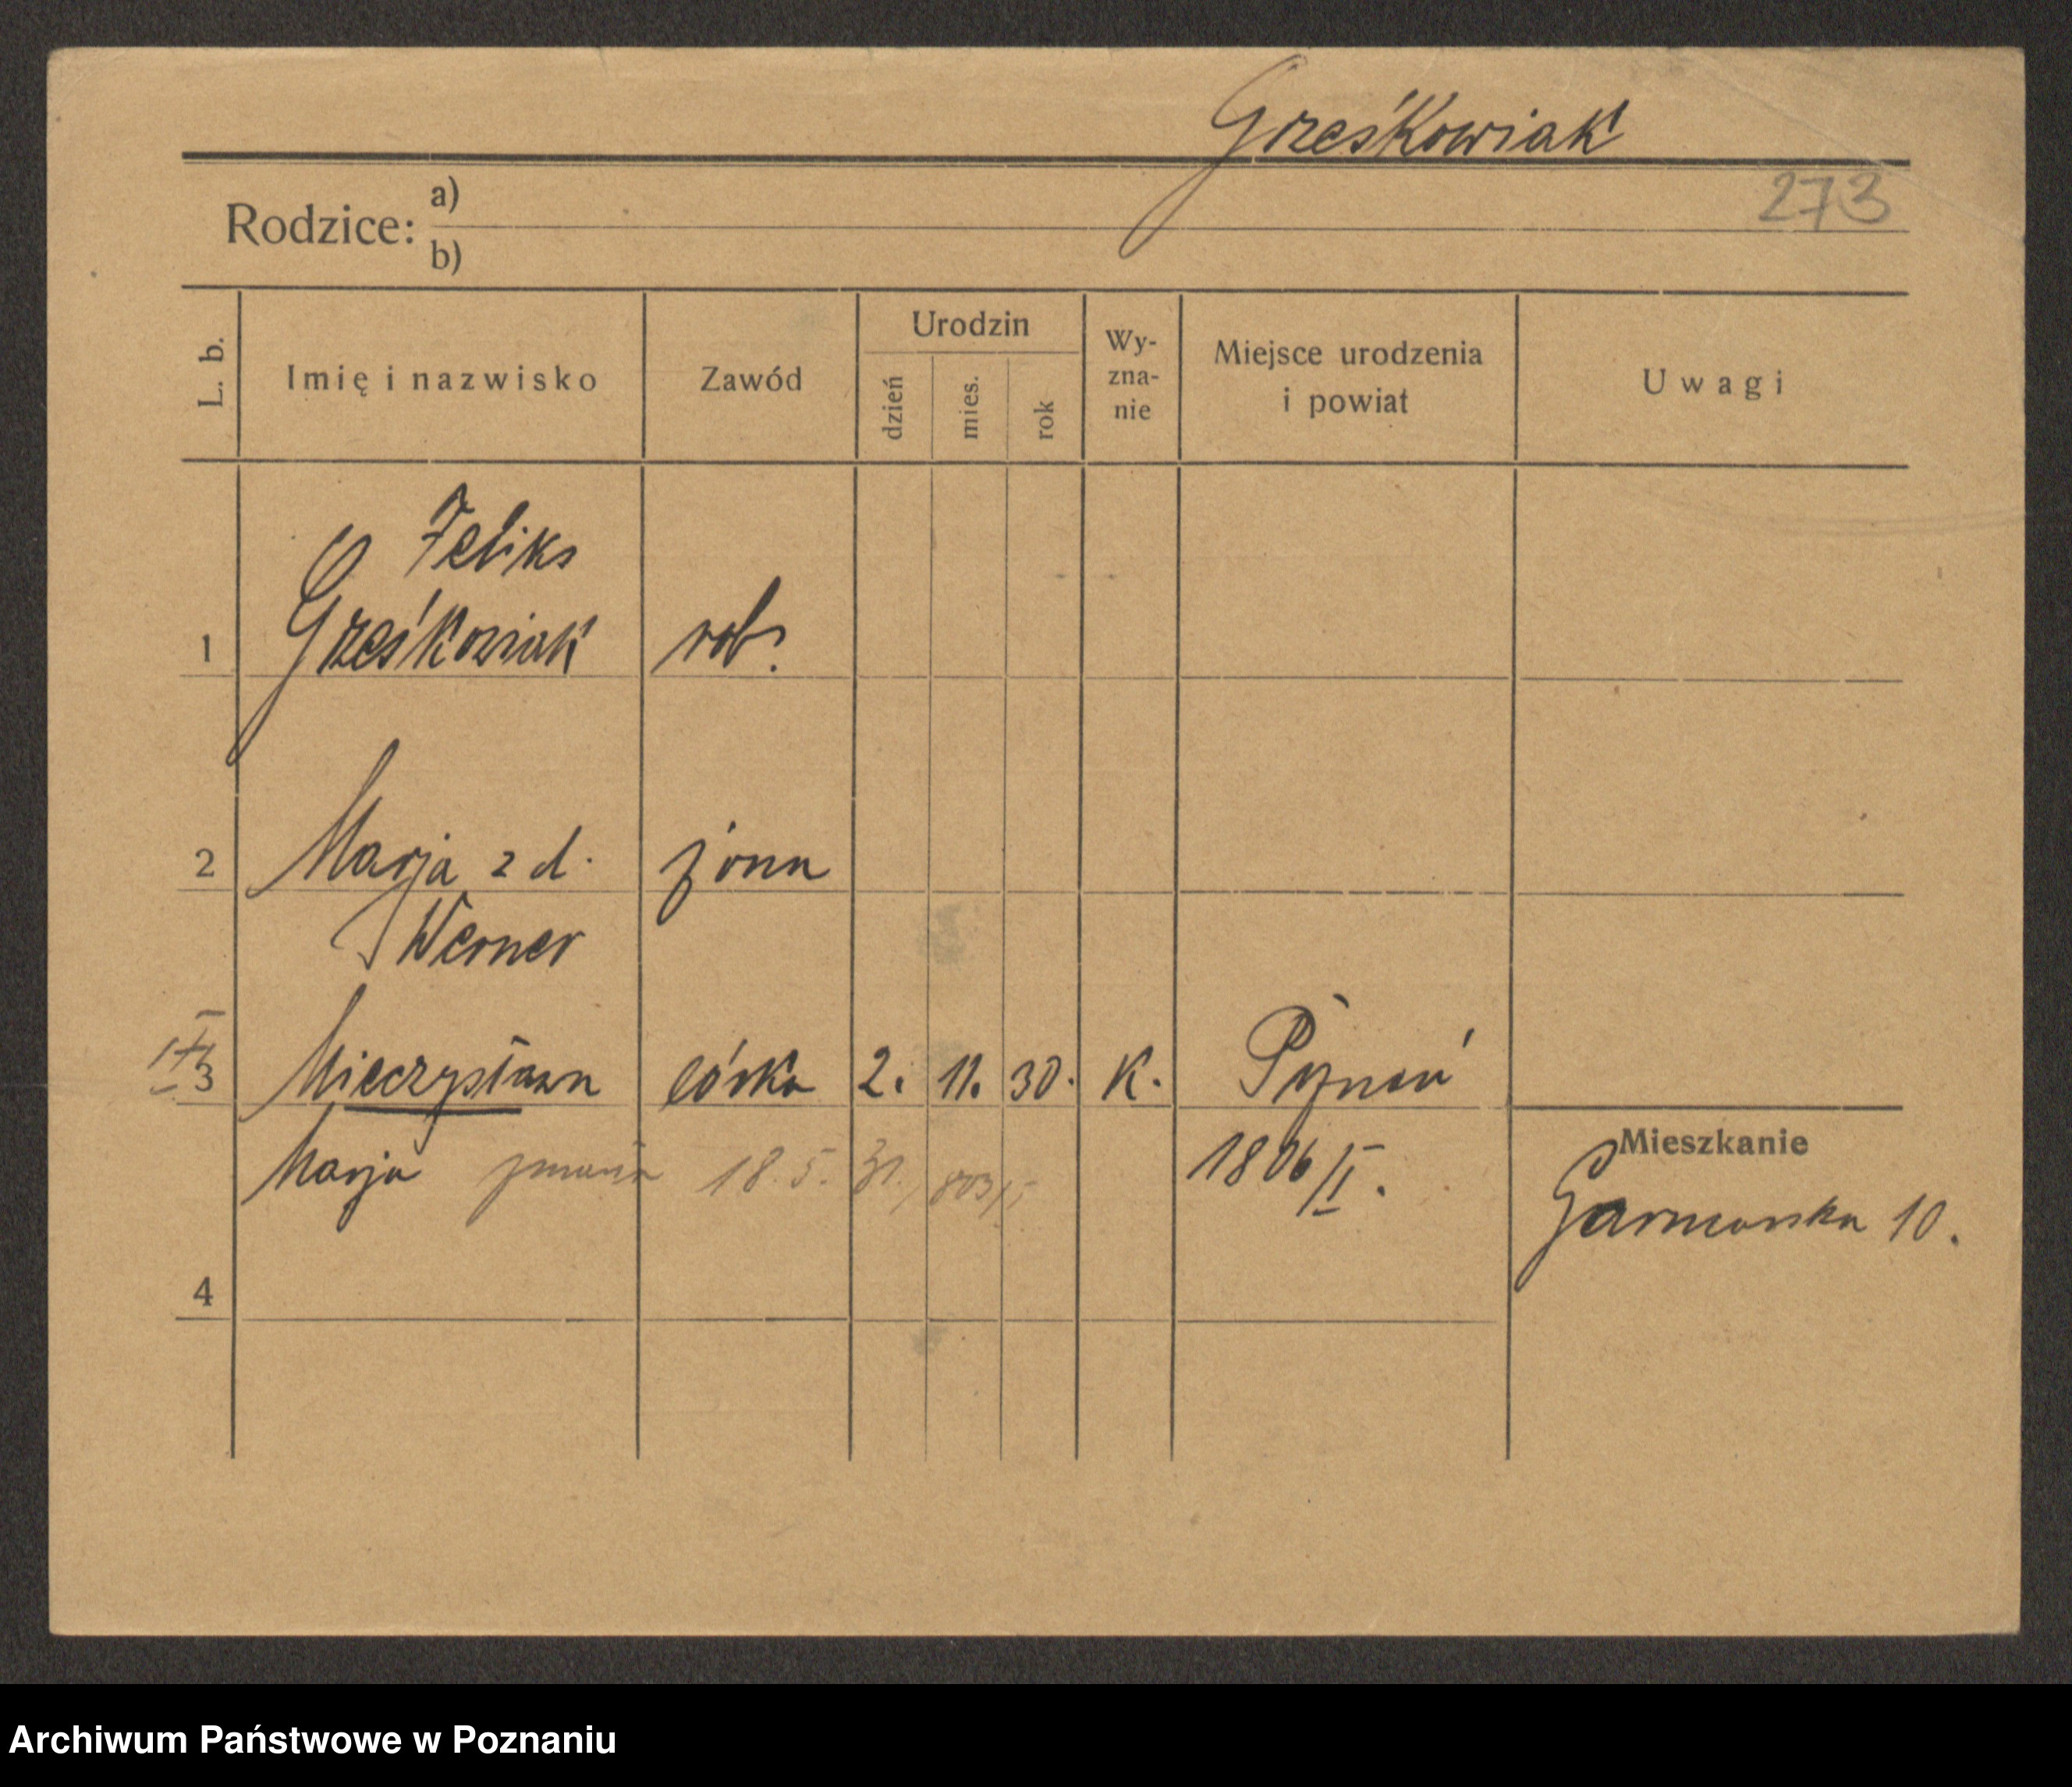 Grześkowiak
273
Rodzice: a)
b)
L. b. Imię i nazwisko Zawód Urodzin dzień mies. rok Wy-zna-nie Miejsce urodzenia i powiat Uwagi
Feliks
1 Grześkowiak rob.
2 Marja z d. żona
Werner
3 Mieczysława córka 2. 11. 30. K. Poznań
Marja zmarła 18. 5. 31. 803/II 1806/II.
Mieszkanie
Garncarska 10.
4
Archiwum Państwowe w Poznaniu